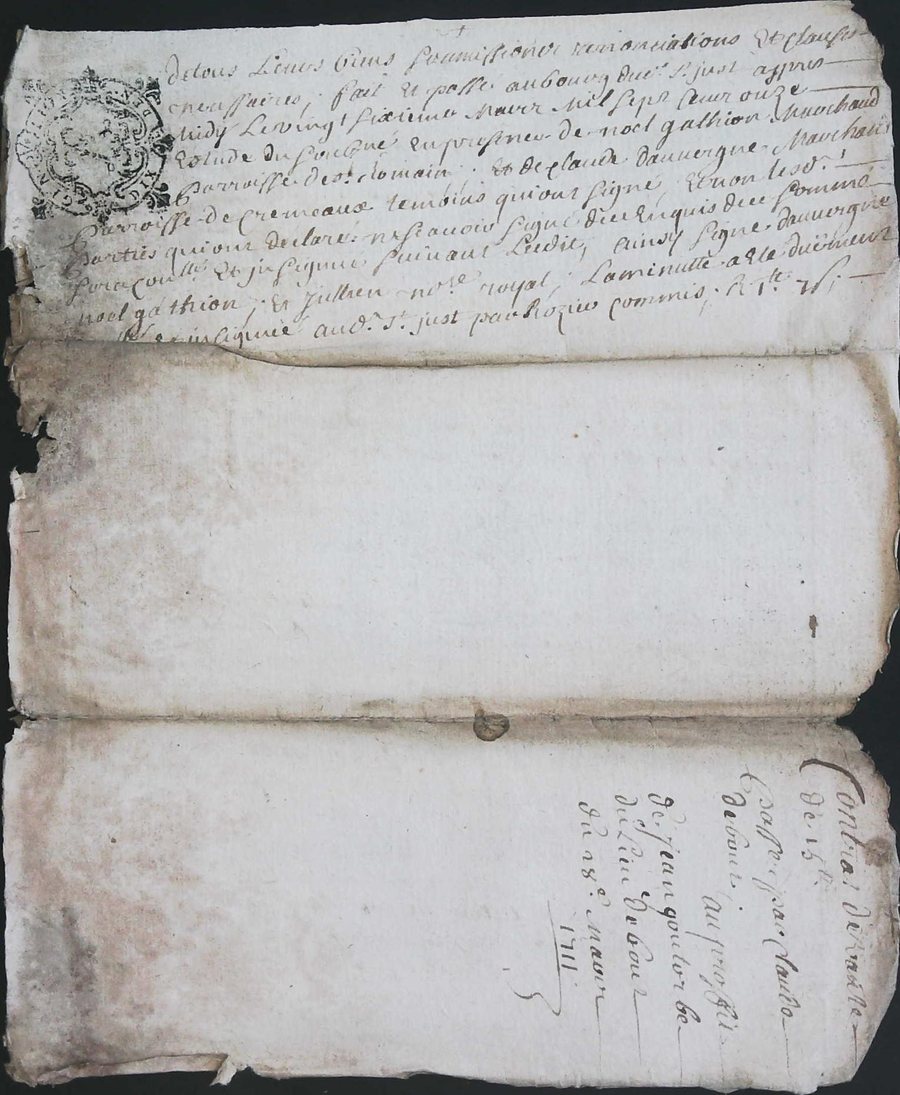 de tous leurs biens soumissions renonciations et clauses
necessaires, fait et passé au bourg dud. St just appres
Midy Le vingt sixieme Mars Mil sept cent onze
Estude du soubné En presence de noel gathion Marchand
Parroisse de St Romain, et de claude dauvergne Marchand
Parroisse de cremeaux temoins qui ont signé, Et non lesd.
Parties qui ont declaré ne scavoir signé de ce Enquis de ce sommé
Et insignué suivant Ledit, ainsy signé dauvergne
noel gathion, et Jullien nore royal, La minutte a Esté düement
insignuée aud. St just par Rozier commis, R
Contrat de Rante
de 15
passé par Claude
debout au proffit
de jean goutorbe
du Lieu debout
du 28e Mars
1711